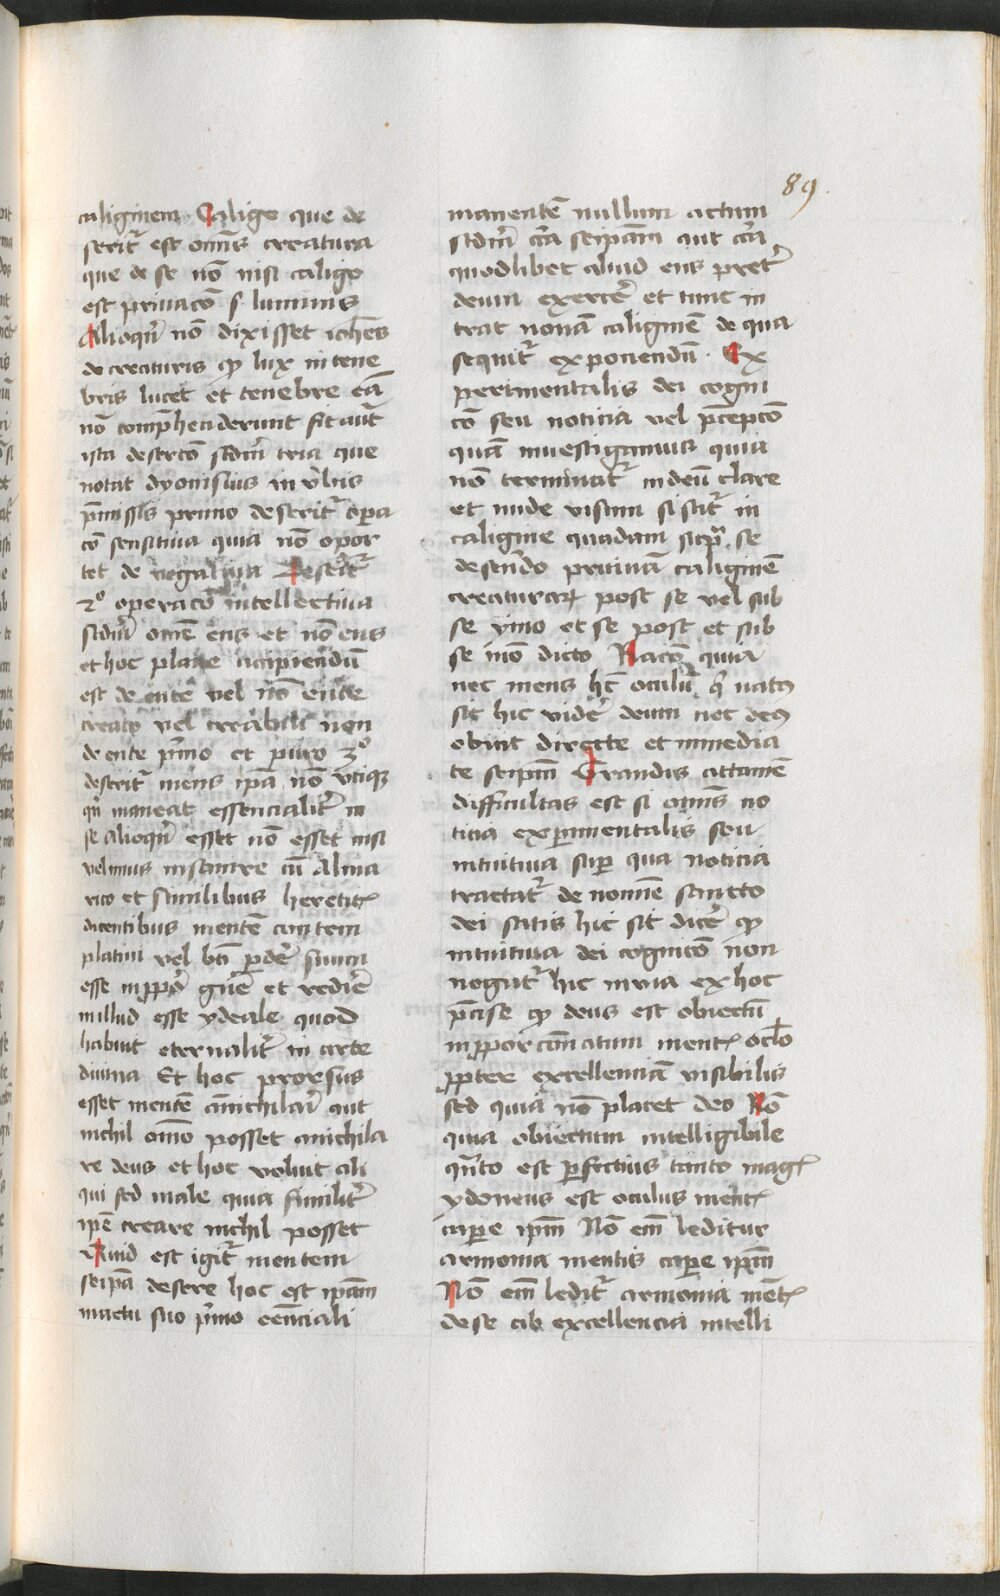 89.
caliginem. Caligo que de
serit᷑ est om̄is creatura
que de se nō nisi caligo
est priuacō s. luminis
Alioqn̄ nō dixisset ioh̄es
de creaturis ꝙ lux in tene
bris lucet et tenebre eā
nō comp̄henderunt fit aūt
ista desercō scdm̄ tria que
notat dyonisius in v̄bis
p̄missis primo deserit᷑ oꝑa
cō sensitiua quia nō opor
tet de negatiua Deserit᷑
2º operacō intellectiua
scdm̄ om̄e ens et nō ens
et hoc plane accipiendū
est de ente vel nō ente
creato vel creabili non
de ente p̄mo et puro 3º
deserit᷑ mens ip̄a nō vtiqꝫ
qn̄ maneat essencialit᷑ in
se Alioqn̄ esset nō esset nisi
velimus insanire cū Alma
rico et similibus heretic᷑
dicentibus mentē contem
platiui vel bt̄i ꝑdēr suum
esse in ꝓpͦ gn̄e et redīre
in illud esse ydeale quod
habuit eternalit᷑ in arte
diuina Et hoc prorsus
esset mentē ānichilari aut
nichil om̄o posset anichila
re deus et hoc voluit ali
qui sed male quia similit᷑
ip̄e creare nichil posset
Quid est igit᷑ mentem
seip̄ā deserere hoc est ip̄am
in actu suo p̄mo eēnciali
manentē nullum actum
scdm̄ cc̄a seip̄am aut cc̄a
quodlibet aliud ens pret᷑
deum exercēr et tunc in
trat nouā caliginē de qua
sequit᷑ exponiendū. Ex
perimentalis dei cogni
cō seu noticia vel p̄cepcō
quā inuestigamus quia
nō terminat᷑ in deū clare
et nude visum sistit᷑ in
caligine quadam supͣ se
deserēdo priuinā caliginē
creaturaꝝ post se vel sub
se ymo et se post et sub
se mō dicto Racō quia
nec mens hc̄ oculū quo natꝰ
sit hic vidēr deum nec deꝰ
obiicit directe et inmedia
te seip̄m Grandis attamē
difficultas est si om̄is no
ticia experimentalis seu
intuitiua suꝑ qua noticia
tractat᷑ de nomīe sancto
dei satis hic sit dicēr ꝙ
intuitiua dei cognicō non
negat᷑ hic in via ex hoc
p̄cise ꝙ deus est obiectū
inꝓporcōnatum ment᷑ oclo
ꝓpter excellenciā visibilis
sed quia nō placet deo Nō
quia obiectum intelligibile
qn̄to est ꝑfectius tanto magꝭ
ydoneus est oculus ment᷑
caꝑe ip̄m Nō em̄ leditur
armonia mentis caꝑe ip̄m
Nō em̄ ledit᷑ armonia mēt᷑
de se ab excellencia intelli